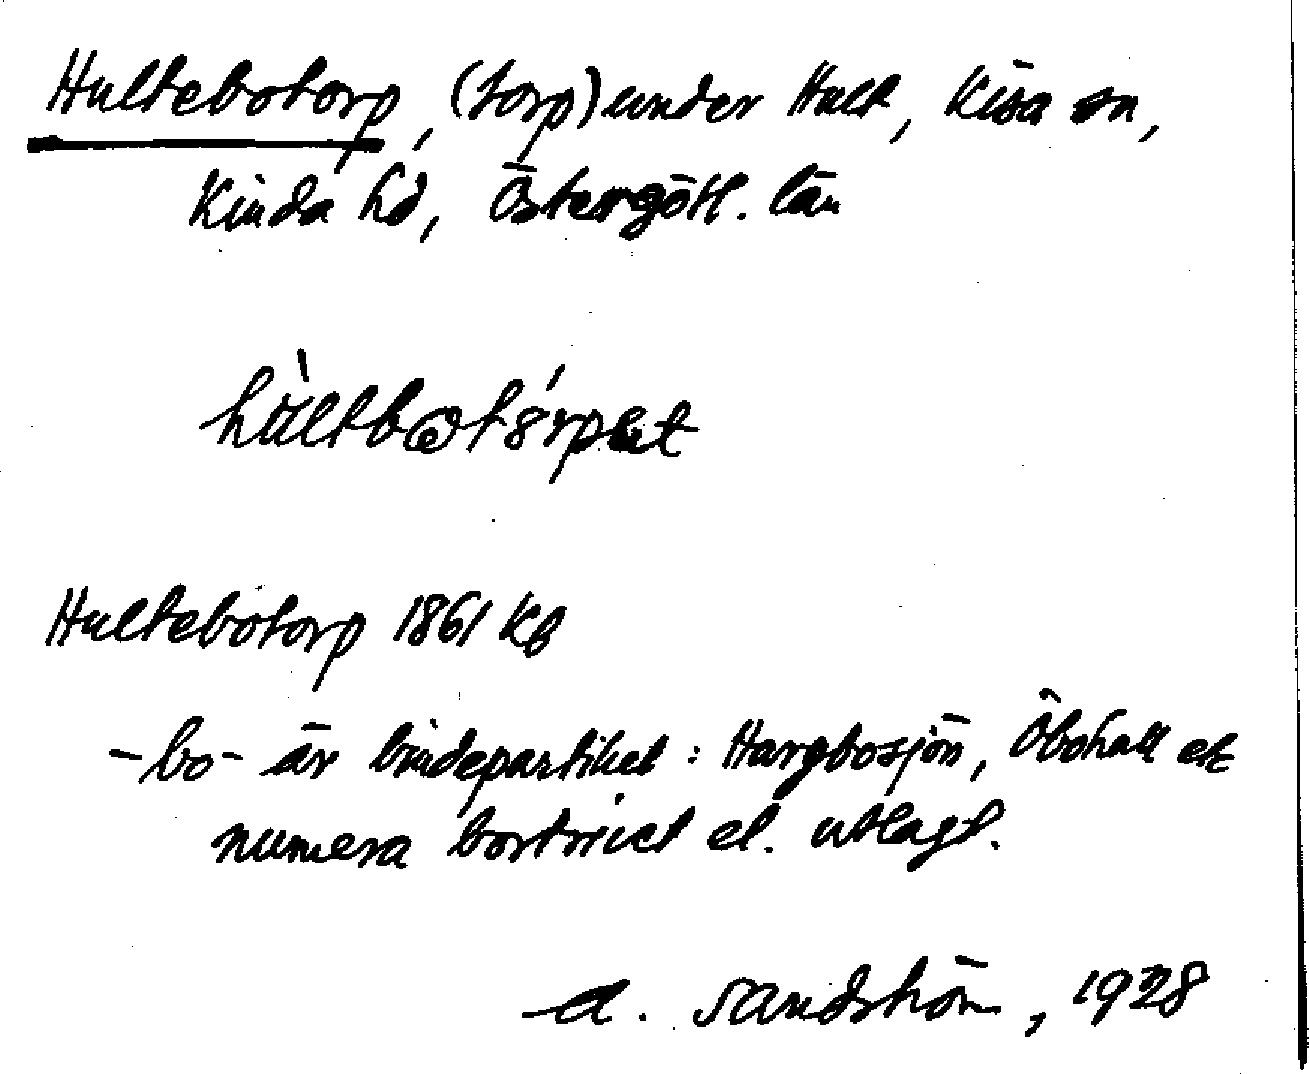 Hultebotorp, (torp) under Hult, Kisa sn,
Kinda hd, Östergötl. län
hùltbɷtǿrpet
Hultebotorp 1861 Kb
-bo- är bindepartikel: Hargbosjön, Öbohult etc
numera bortrivet el. utlagt.
A. Sandström, 1928